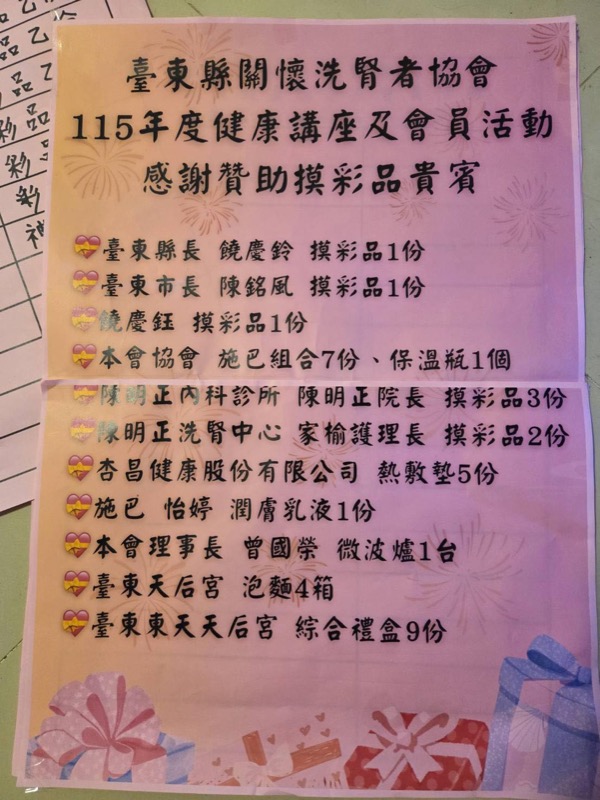 臺東縣關懷洗腎者協會
115年度健康講座及會員活動
感謝贊助摸彩品貴賓
臺東縣長 饒慶鈴 摸彩品1份
臺東市長 陳銘風 摸彩品1份
饒慶鈺 摸彩品1份
本會協會 施巴組合7份、保溫瓶1個
陳明正內科診所 陳明正院長 摸彩品3份
陳明正洗腎中心 家榆護理長 摸彩品2份
杏昌健康股份有限公司 熱敷墊5份
施巴 怡婷 潤膚乳液1份
本會理事長 曾國榮 微波爐1台
臺東天后宮 泡麵4箱
臺東東天天后宮 綜合禮盒9份